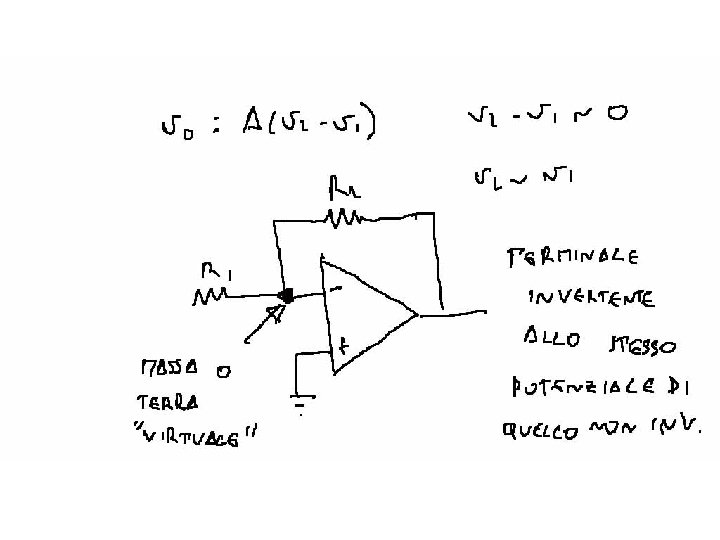 v₀ = A(v₂ - v₁)
v₂ - v₁ ~ 0
v₂ ~ v₁
R₂
R₁
-
+
MASSA O
TERRA
"VIRTUALE"
TERMINALE
INVERTENTE
ALLO STESSO
POTENZIALE DI
QUELLO NON INV.